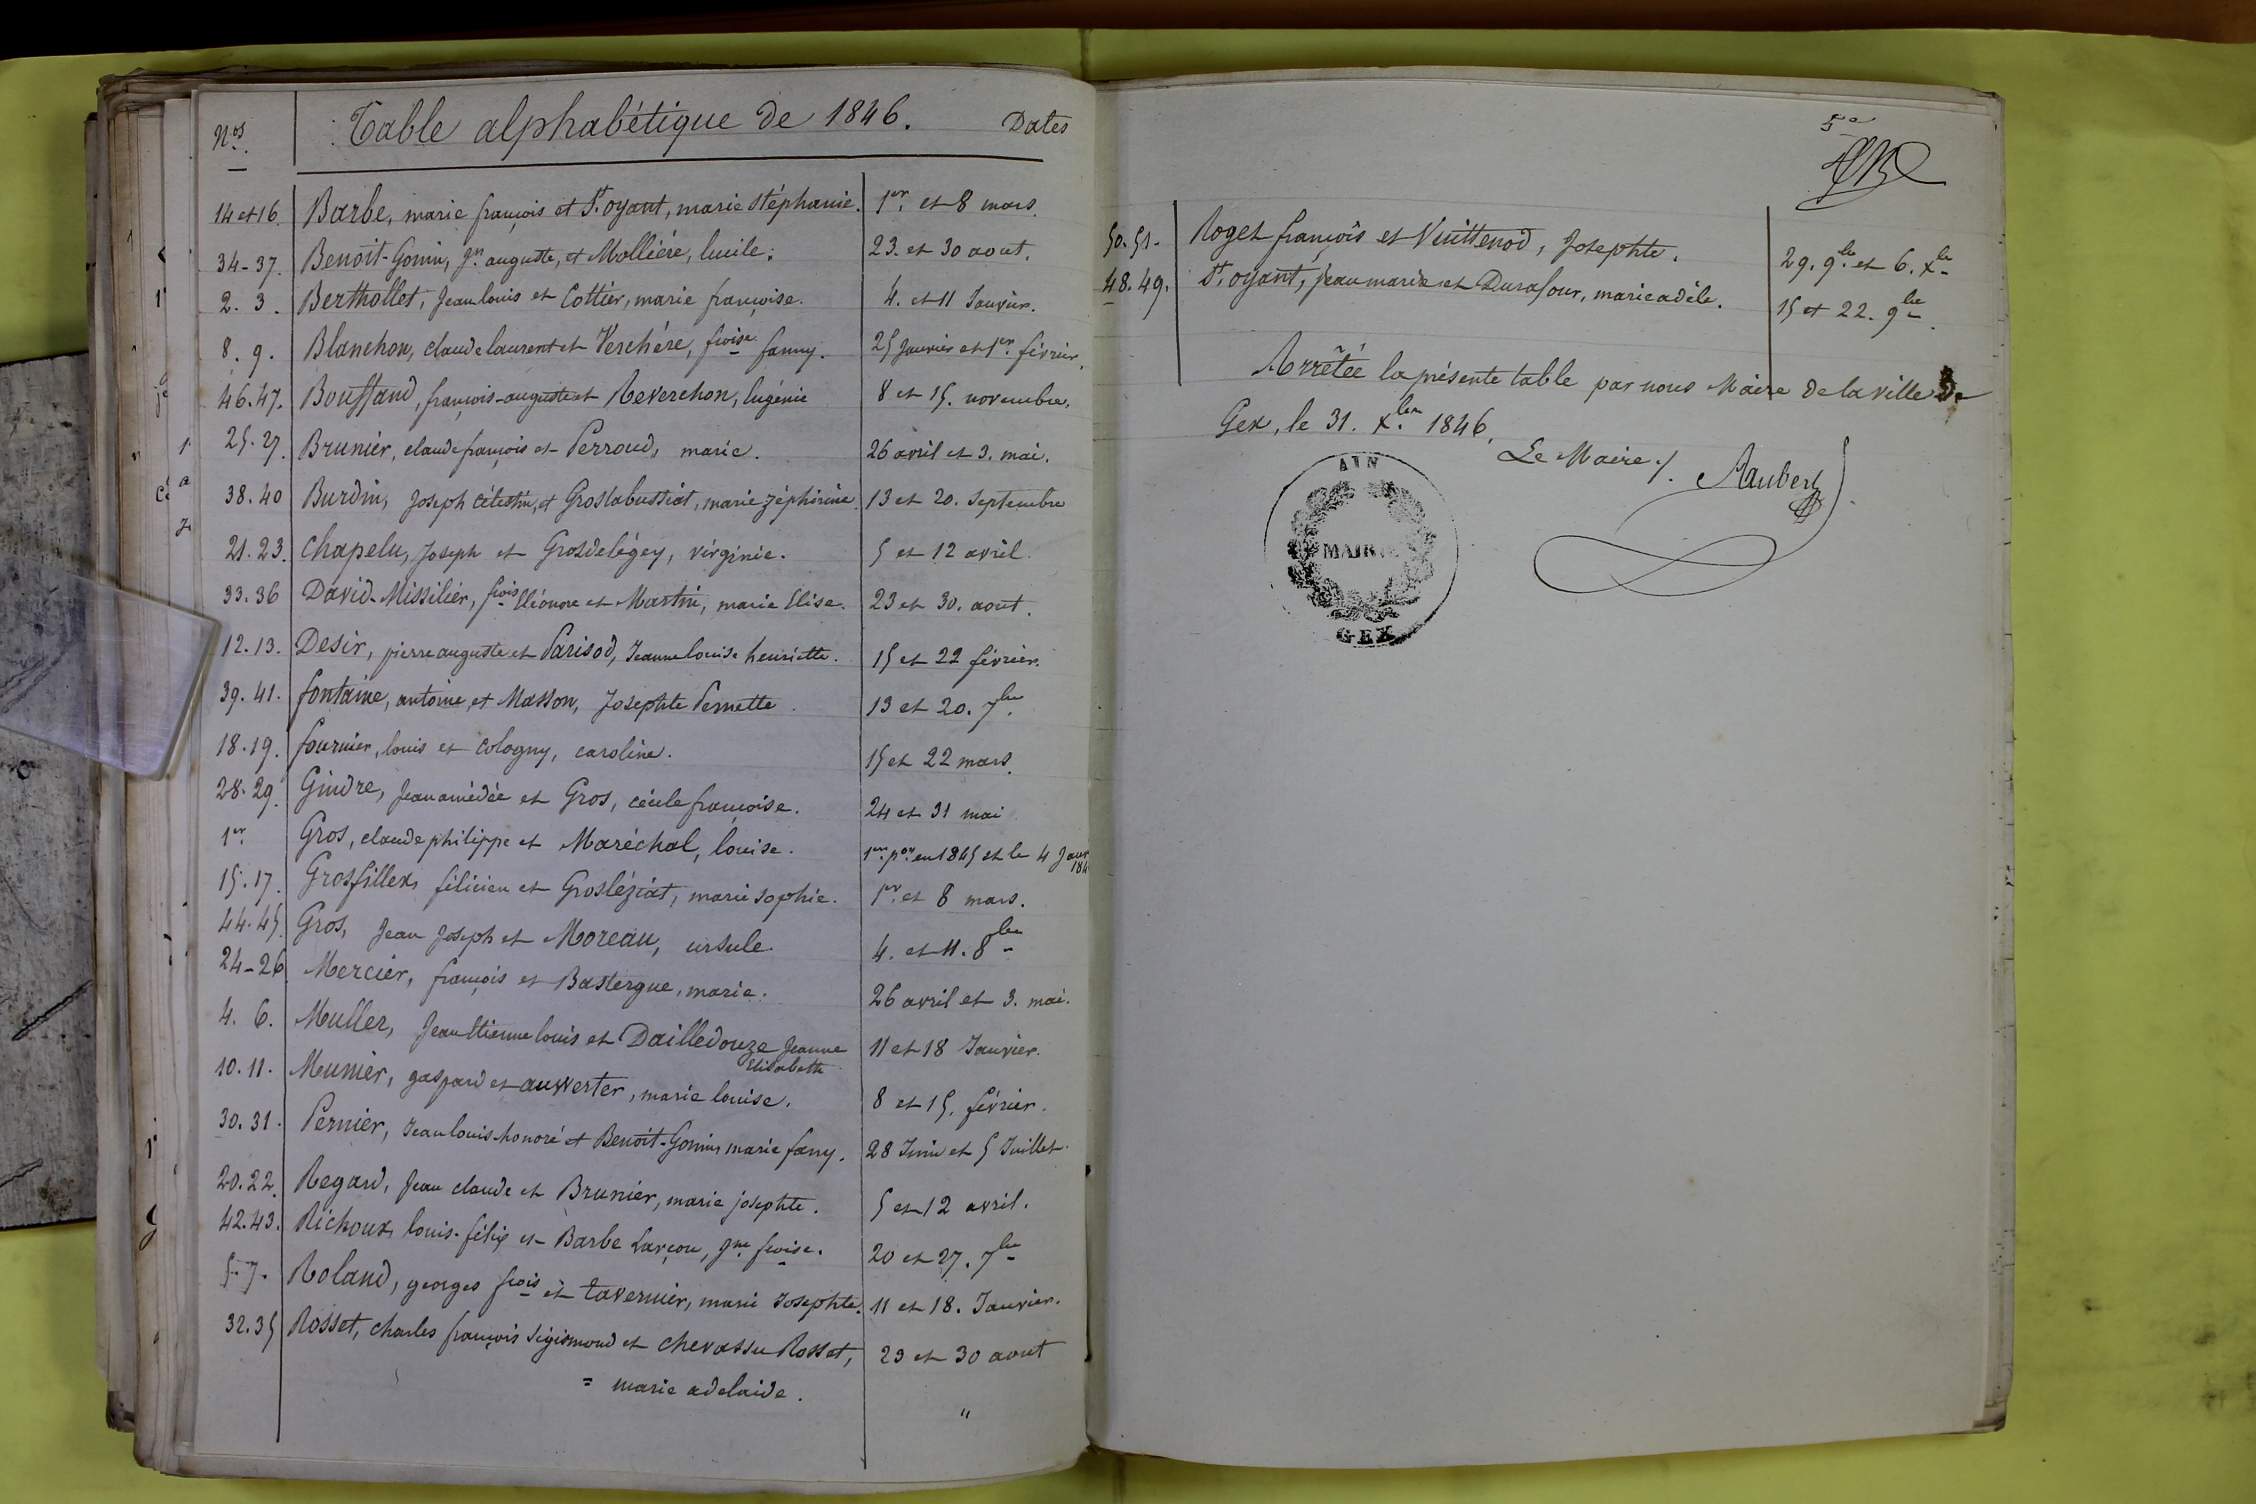 Nos. Table alphabétique de 1846. Dates
14 et 16. Barbe, marie françois et St. oyant, marie stéphanie. 1er. et 8 mars.
34-37. Benoit-Gonin, jn. auguste, et Mollière, lucile. 23. et 30 aout.
2. 3. Berthollet, Jean louis et Cottier, marie françoise. 4. et 11 Janvier.
8. 9. Blanchon, claude laurent et Verchère, froise fanny. 25 Janvier et 1er. février.
46.47. Bouffand, françois-auguste et Reverchon, Eugénie 8 et 15. novembre.
25.27. Brunier, claude françois et Perroud, marie. 26 avril et 3. mai.
38.40 Burdin, Joseph Célestin, et Groslabussiat, marie zéphirine. 13 et 20. Septembre
21.23. Chapelu, Joseph et Grosdelégey, virginie. 5 et 12 avril.
33.36 David-Missilier, frois Eléonore et Martin, marie Elise. 23 et 30. aout.
12.13. Desir, pierre auguste et Parisod, Jeanne louise henriette. 15 et 22 février.
39.41. fontaine, antoine, et Masson, Josephte Pernette. 13 et 20. 7bre.
18.19. fournier, louis et Cologny, caroline. 15 et 22 mars.
28.29. Gindre, Jean amédée et Gros, cécile françoise. 24 et 31 mai
1er. Gros, claude philippe et Maréchal, louise. 1ere. pon. en 1845 et le 4 Janv
184
15.17. Grosfillex, félicien et Grosléziat, marie sophie. 1er. et 8 mars.
44.45. Gros, Jean Joseph et Moreau, ursule. 4. et 11. 8bre
24-26. Mercier, françois et Bastergue, marie. 26 avril et 3. mai.
4. 6. Muller, Jean Etienne louis et Dailledouze Jeanne 11 et 18 Janvier.
Elisabeth
10.11. Meunier, gaspard et auwerter, marie louise. 8 et 15. février.
30.31. Pernier, Jean louis honoré et Benoit-Gonin, marie fany. 28 Juin et 5 Juillet.
20.22. Regard, Jean claude et Brunier, marie josephte. 5 et 12 avril.
42.43. Richoux, louis-félix et Barbe Larçon, jne. froise. 20 et 27. 7bre
5.7. Roland, georges frois et tavernier, marie Josephte. 11 et 18. Janvier.
32.35 Rosset, charles françois sigismond et chevassu Rosset, 23 et 30 aout
= marie adelaide. "
5e
50.51. Roget françois et Vuittenod, Josephte. 29. 9bre. et 6. xbre
48.49. St. oyant, Jean marie et Durafour, marie adèle. 15 et 22. 9bre.
Arrêtée la présente table par nous Maire de la ville de
Gex, le 31. xbre. 1846.
Le Maire./. Aubert
AIN
MAIRIE
GEX